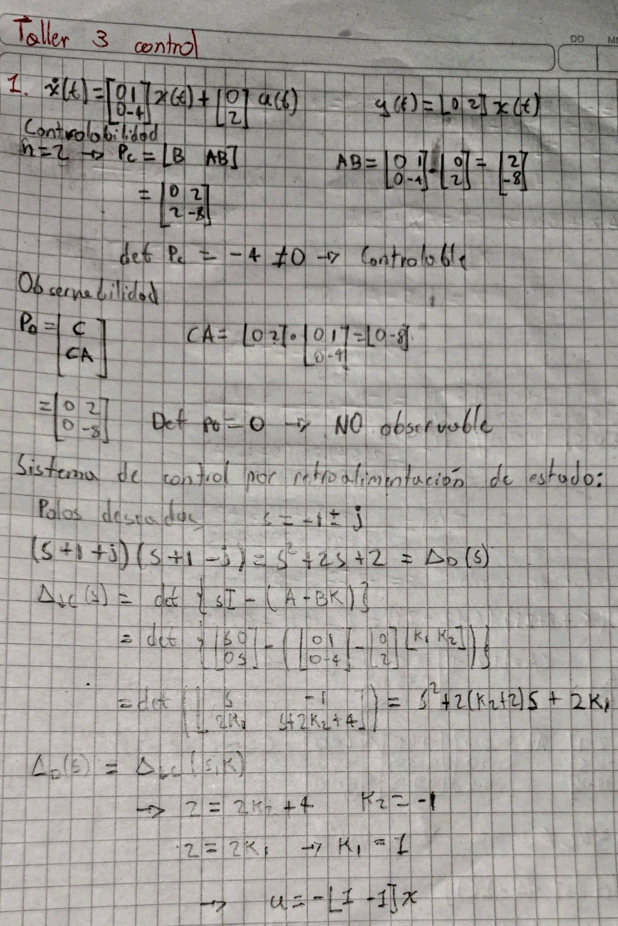 Taller 3 control
DD MM
1. ẋ(t)=[0 1; 0 -4]x(t)+[0; 2]u(t) y(t)=[0 2]x(t)
Controlabilidad
n=2 → Pc=[B AB] AB=[0 1; 0 -4]·[0; 2]=[2; -8]
=[0 2; 2 -8]
det Pc = -4 ≠0 → Controlable
Observabilidad
Po=[C; CA] CA=[0 2]·[0 1; 0 -4]=[0 -8]
=[0 2; 0 -8] Det Po=0 → NO observable
Sistema de control por retroalimentación de estado:
Polos deseados s=-1±j
(s+1+j)(s+1-j)=s²+2s+2=ΔD(s)
ΔLC(s)= det{sI-(A-BK)}
= det{[s 0; 0 s]-([0 1; 0 -4]-[0; 2][K1 K2])}
=det([s -1; 2K1 s+2K2+4])= s²+2(K2+2)s+2K1
ΔD(s)=ΔLC(s,K)
→ 2=2K2+4 K2=-1
2=2K1 → K1=1
→ u=-[1 -1]x